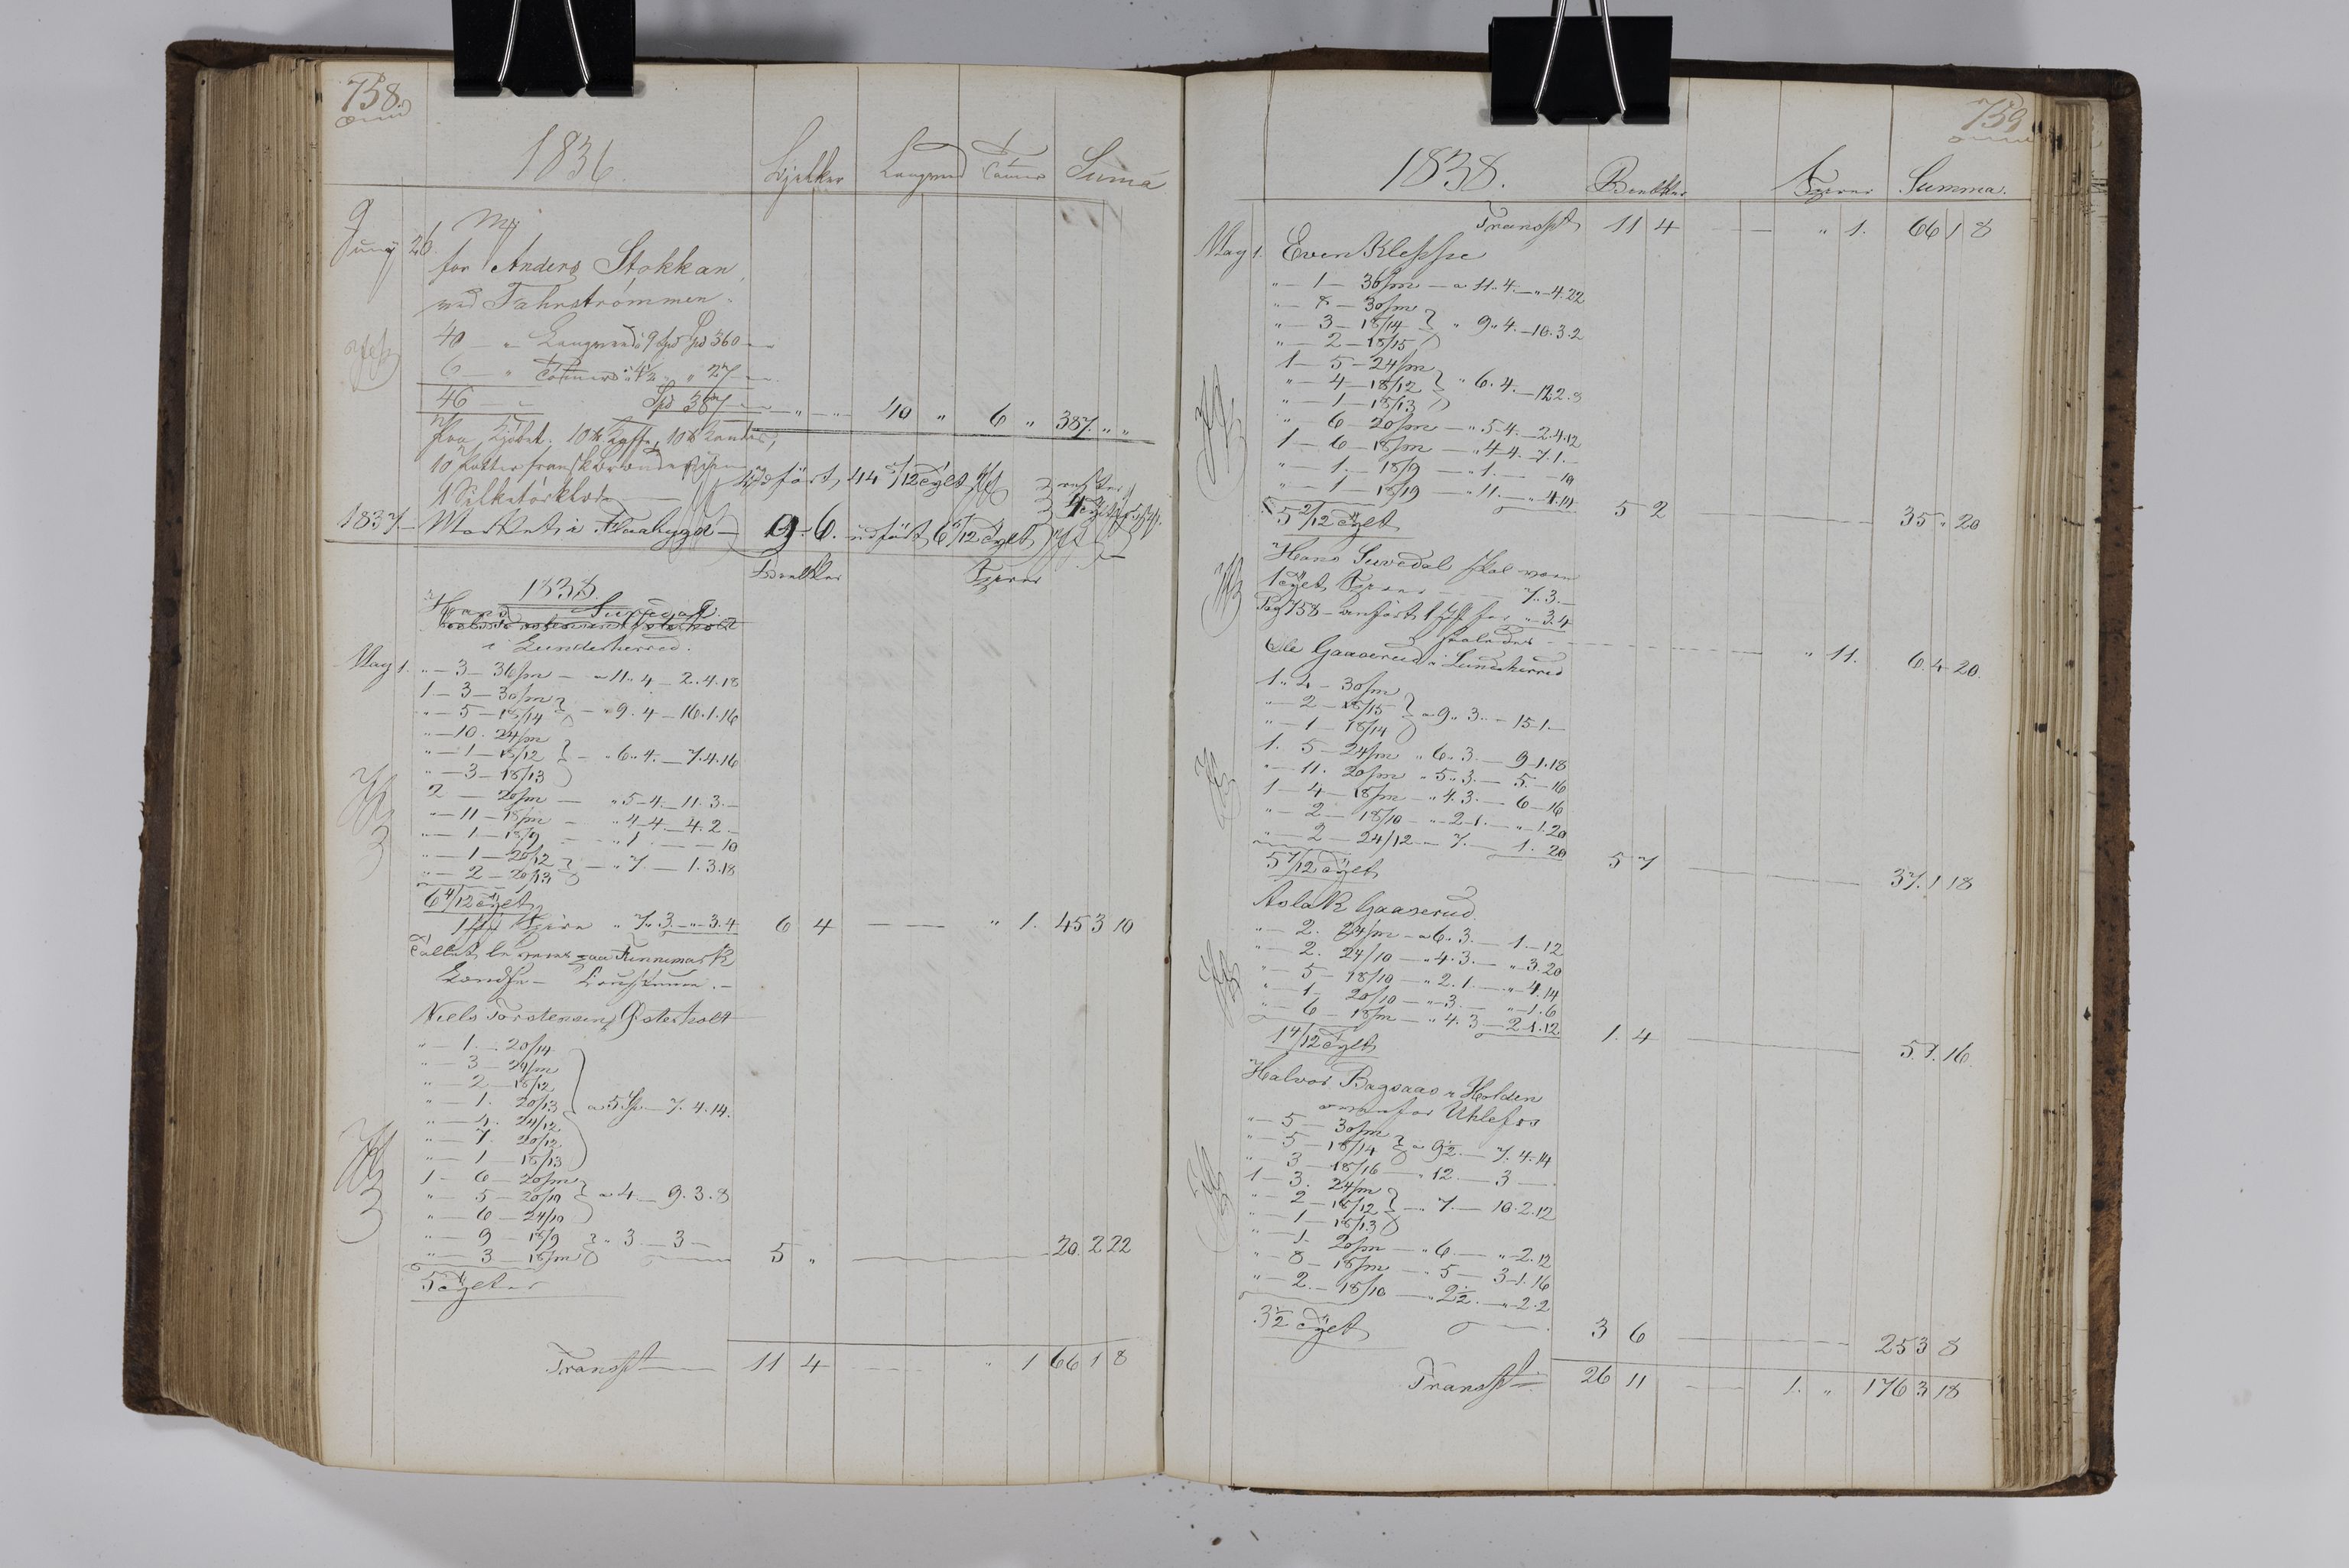 758.
1836.
Bjelker Langved Tömer Suma
Juny 26
for Anders Stokkan
ved Fahrströmmen.
40 — " Langved 9 Spd 360 —
6 — " Tömer " 4½ " 27 —
46 — Spd 387 — " — " 40 " 6 " 387 " "
10 Potter fransk
1 Silketörklæde
1837 — Mærket i Flaabygd — 9-6. 6/12 Tylt
Bielker Sperer
1838.
Hans Suvedal
i Lundeherred.
May 1. " — 3 — 36/m — a 11 " 4 — 2.4.18
1 — 3 — 30/m
" — 5 — 18/14 — " 9. 4 — 16.1.16
" — 10. 24/m
" — 1 — 18/12 — " 6 " 4. — 7.4.16
" — 3 — 18/13
2 — 20/m — " 5-4. — 11. 3. —
" — 11 — 18/m — " 4-4. — 4. 2 —
" — 1. — 18/9 — " 1. — — 10
" — 1 — 20/12 — " 7. — 1.3.18
" — 2 — 20/13
6 4/12 Tylt
1 Spire " 7 " 3. — " — 3.4 6 4 — — " 1. 45 3 10
Niels Torstensen Österholt
" — 1. — 20/14
" — 3 — 24/m
" — 2 — 18/12
" — 1. 20/13 a 5 Sp — 7.4.14.
" — 4. 24/12
" — 7. 20/12
" — 1 — 18/13
1 — 6 — 20/m
" — 5 — 20/10 " 4. — 9.3.8
" — 6 — 24/10
" — 9 — 18/9 " 3 — 3 —
" — 3 — 18/m 5 " — 20. 2 22
5 Tylter
Transpt 11 4 — " 1 66 1 8
759
1838. Bielker Sperer Summa.
Transpt 11 4 — " 1. 66 1 8
May 1. Even Kleppe
" — 1 — 36/m — a 11 " 4. — " — 4.22
" — 8 — 30/m
" — 3 — 18/14 " 9 " 4. — 10.3.2
" — 2 — 18/15
1 — 5 — 24/m
" — 4 — 18/12 " 6.4. — 12.2.8
" — 1 — 18/13
" — 6 — 20/m — " 5-4. — 2.4.12
1 — 6 — 18/m — " 4-4. — 7.1. —
" — 1. — 18/9 — " 1. — — 10
" — 1 — 18/19 — " 11. — " 4.14
5 2/12 Tylt 5 2 — 35 " 20
Hans Suvedal skal være
1 Tylt Sperer — 7 " 3. —
Pag 758 — anfört 1 for " — 3.4
saaledes — " 11. 6.4 20.
Ole Gaaserud i Lundeherred
1 " 4 — 30/m
" — 2 — 18/15 a 9 " 3. — 15.1. —
" — 1 — 18/14
1. 5 — 24/m " 6 " 3. — 9.1.18
" — 11. 20/m " 5 " 3. — 5. — 16
1 — 4 — 18/m — " 4.3. — 6 — 16
" — 2 — 18/10 — " 2.1. — " — 1.20
" — 2 — 24/12 — " 7. — 1. 20
5 7/12 Tylt 5 7 — 37.1 18
Aslak Gaaserud.
" — 2. 24/m — a 6. 3. — 1. — 12
" — 2. 24/10 — " 4.3. — " 3.20
" — 5 — 18/10 — " 2.1. — " 4.14
" — 1. 20/10 — " 3. — " 1.6
" — 6 — 18/m — " 4. 3 — 2.1.12.
1 4/12 Tylt 1. 4 — 5.1.16
Halvor Bagsaas i Holden
ovenfor Uhlefos
" — 5 — 30/m
" — 5 — 18/14 " 9½. — 7.4.14
" — 3 — 18/16 — " 12. — 3 —
1 — 3. 24/m
" — 2 — 18/12 — " 7. — 10.2.12
" — 1 — 18/13
" — 1. 20/m — " 6. — " — 2.12
" — 8 — 18/m — " 5 — 3.1.16
" — 2 — 18/10 — " 2½. — " — 2.2
3½ Tylt 3 6 — 25 3 8
Transpt 26 11 — 1. " 176 3 18